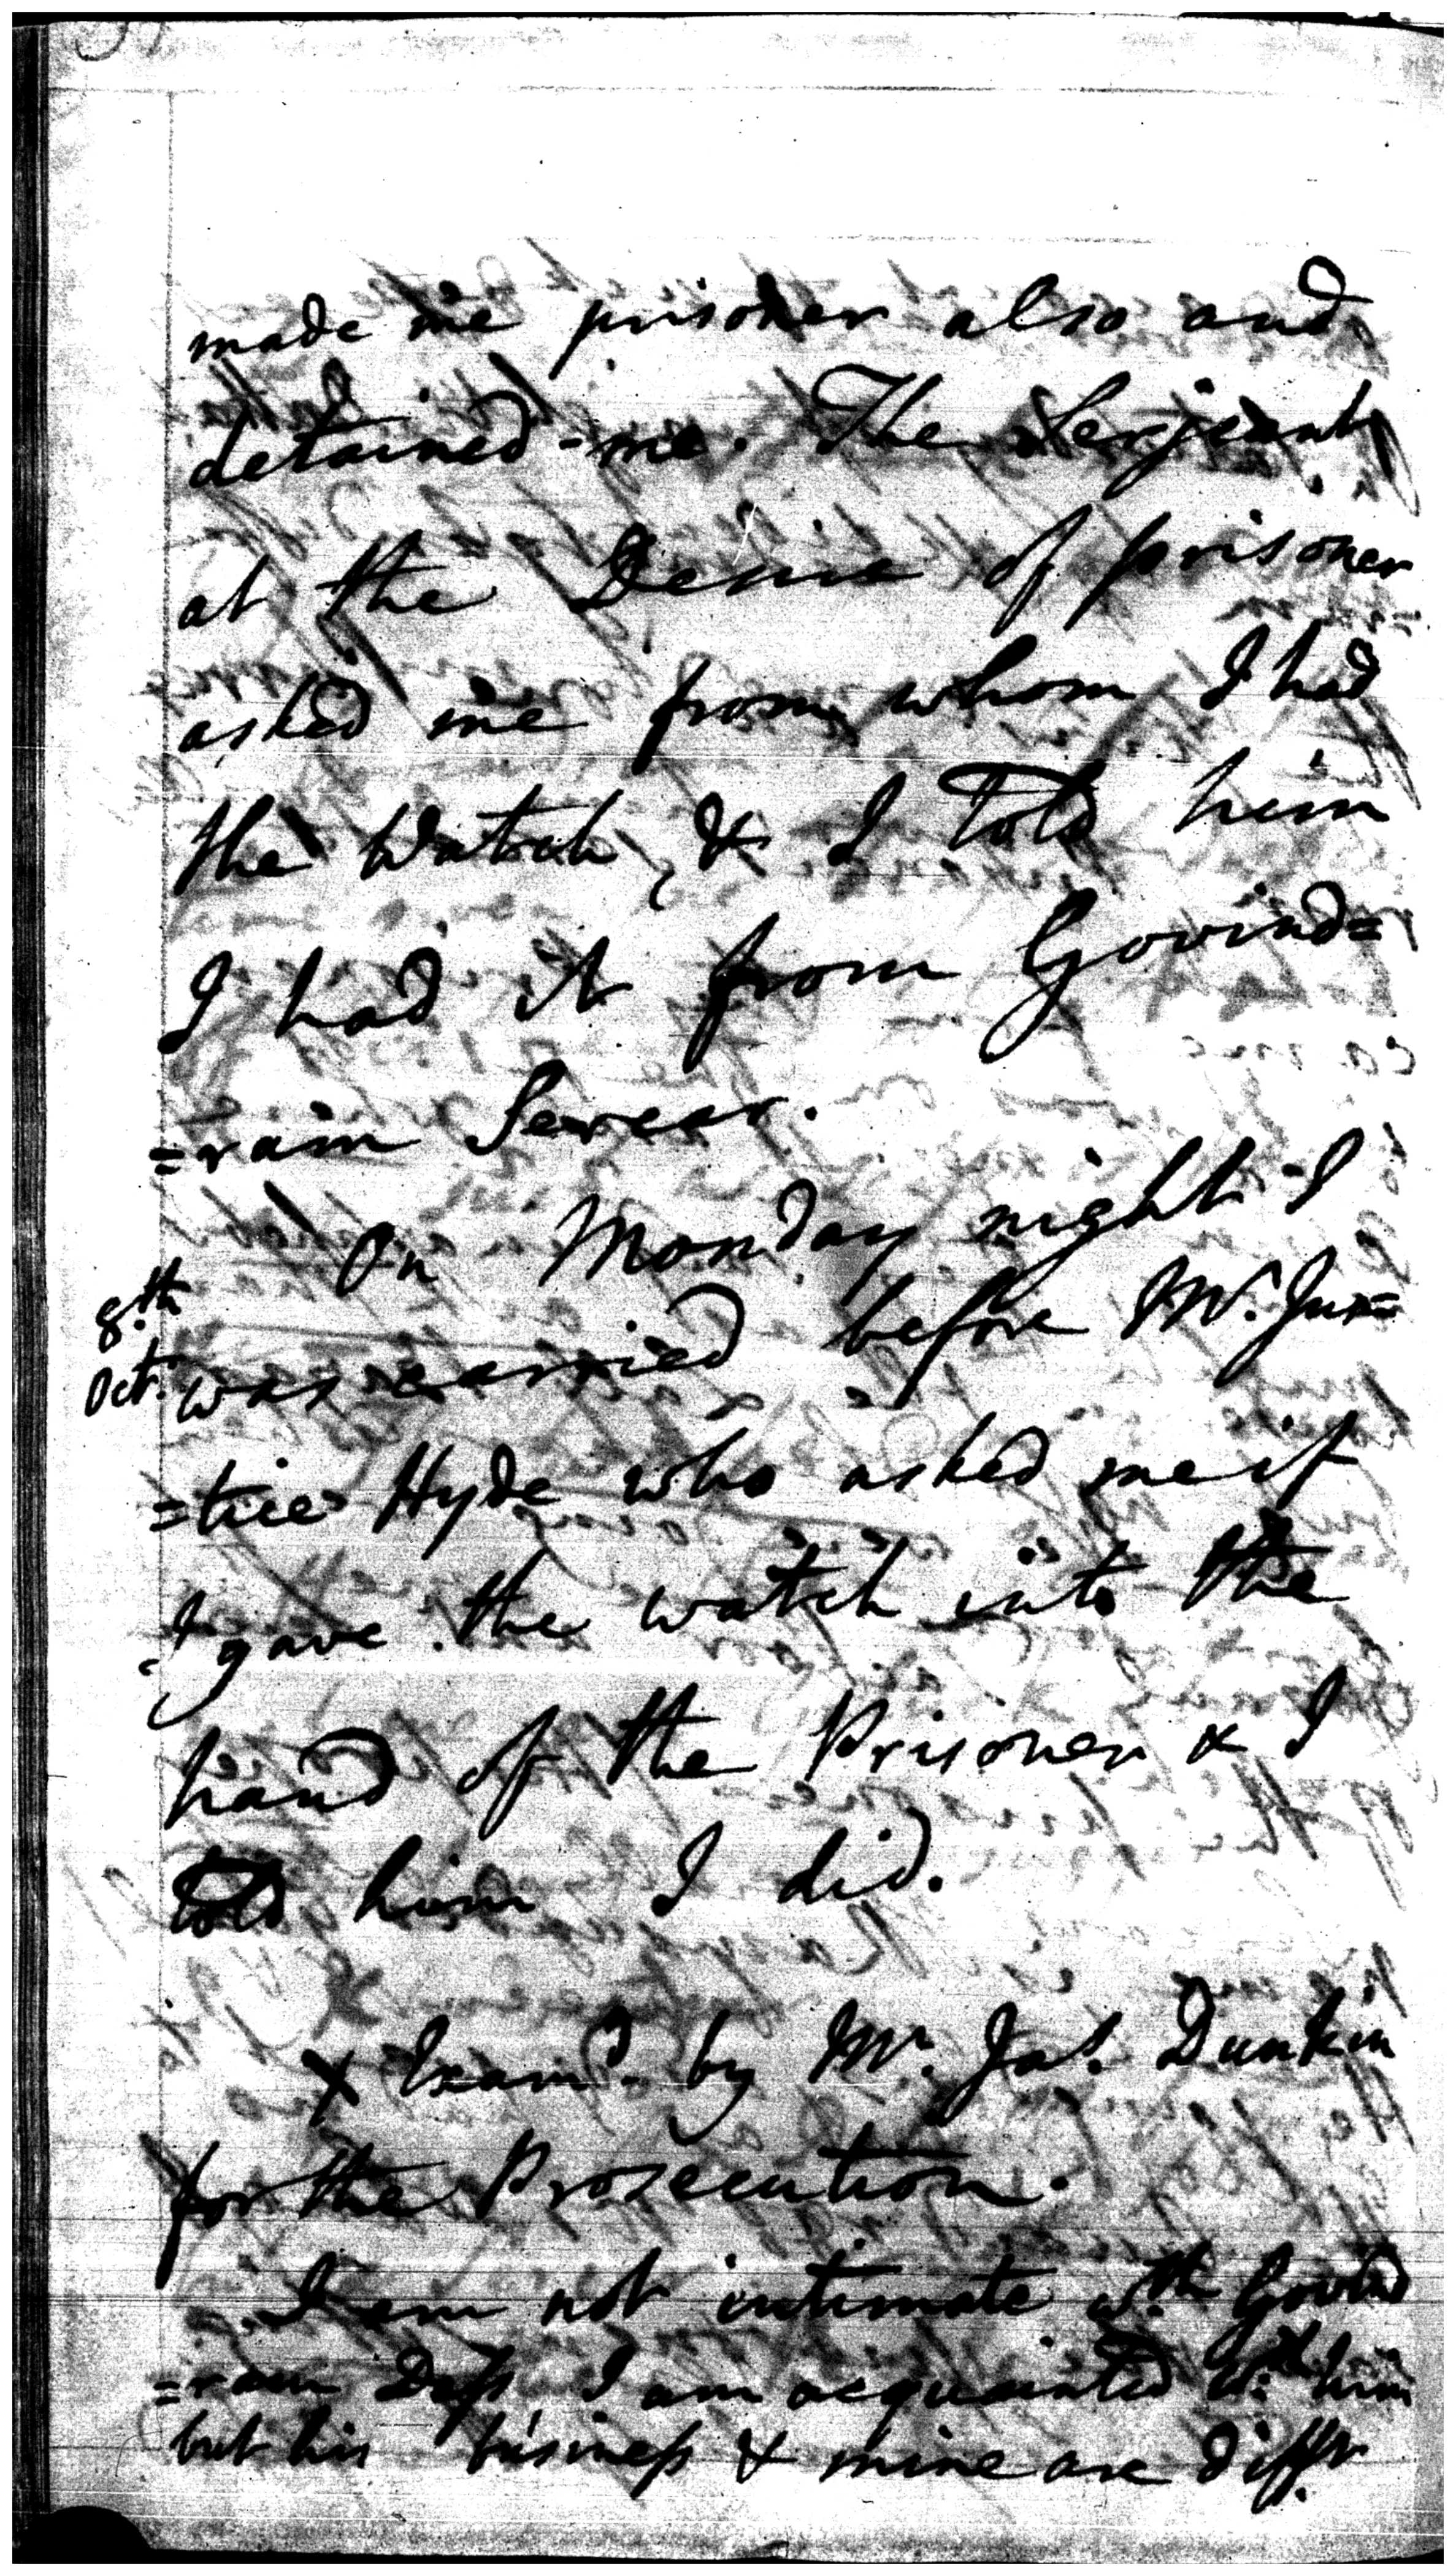 made me prisoner also and
detained me. The Serjeant
at the Desire of prisoner
asked me from whom I had
the Watch, & I told him
I had it from Govind=
=ram Sercar.
On Monday night I
8.th
Oct. was carried before Mr. Jus=
=tice Hyde who asked me if
I gave the watch into the
hand of the Prisoner & I
told him I did.
X Exam.d by Mr. Jas. Dunkin
for the Prosecution.
I am not intimate w.th Govind
=ram Dass I am acquainted w.th him
but his business & mine are diff.r